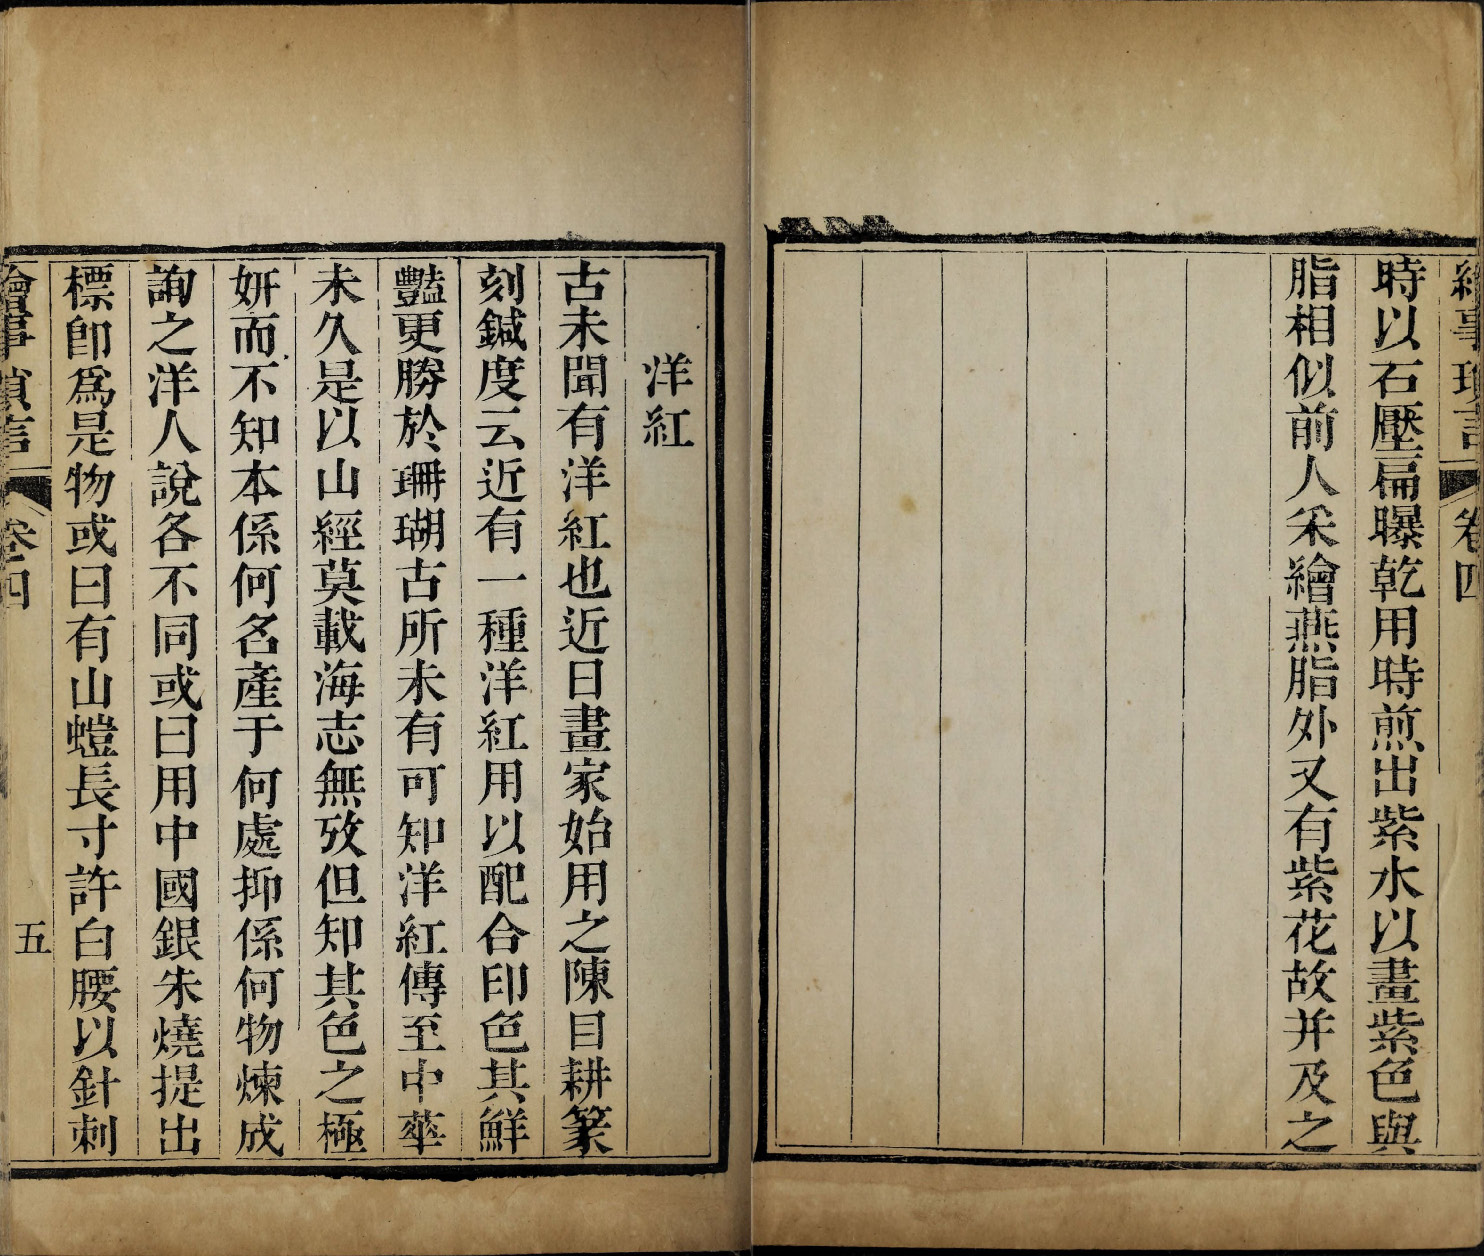 繪事瑣言 卷四
時以石壓扁曝乾用時煎出紫水以畫紫色與
脂相似前人采繪燕脂外又有紫花故并及之
洋紅
古未聞有洋紅也近日畫家始用之陳目耕篆
刻鍼度云近有一種洋紅用以配合印色其鮮
豔更勝於珊瑚古所未有可知洋紅傳至中華
未久是以山經莫載海志無攷但知其色之極
妍而不知本係何名產于何處抑係何物煉成
詢之洋人說各不同或曰用中國銀朱燒提出
標卽爲是物或曰有山螘長寸許白腰以針刺
繪事瑣言 卷四 五